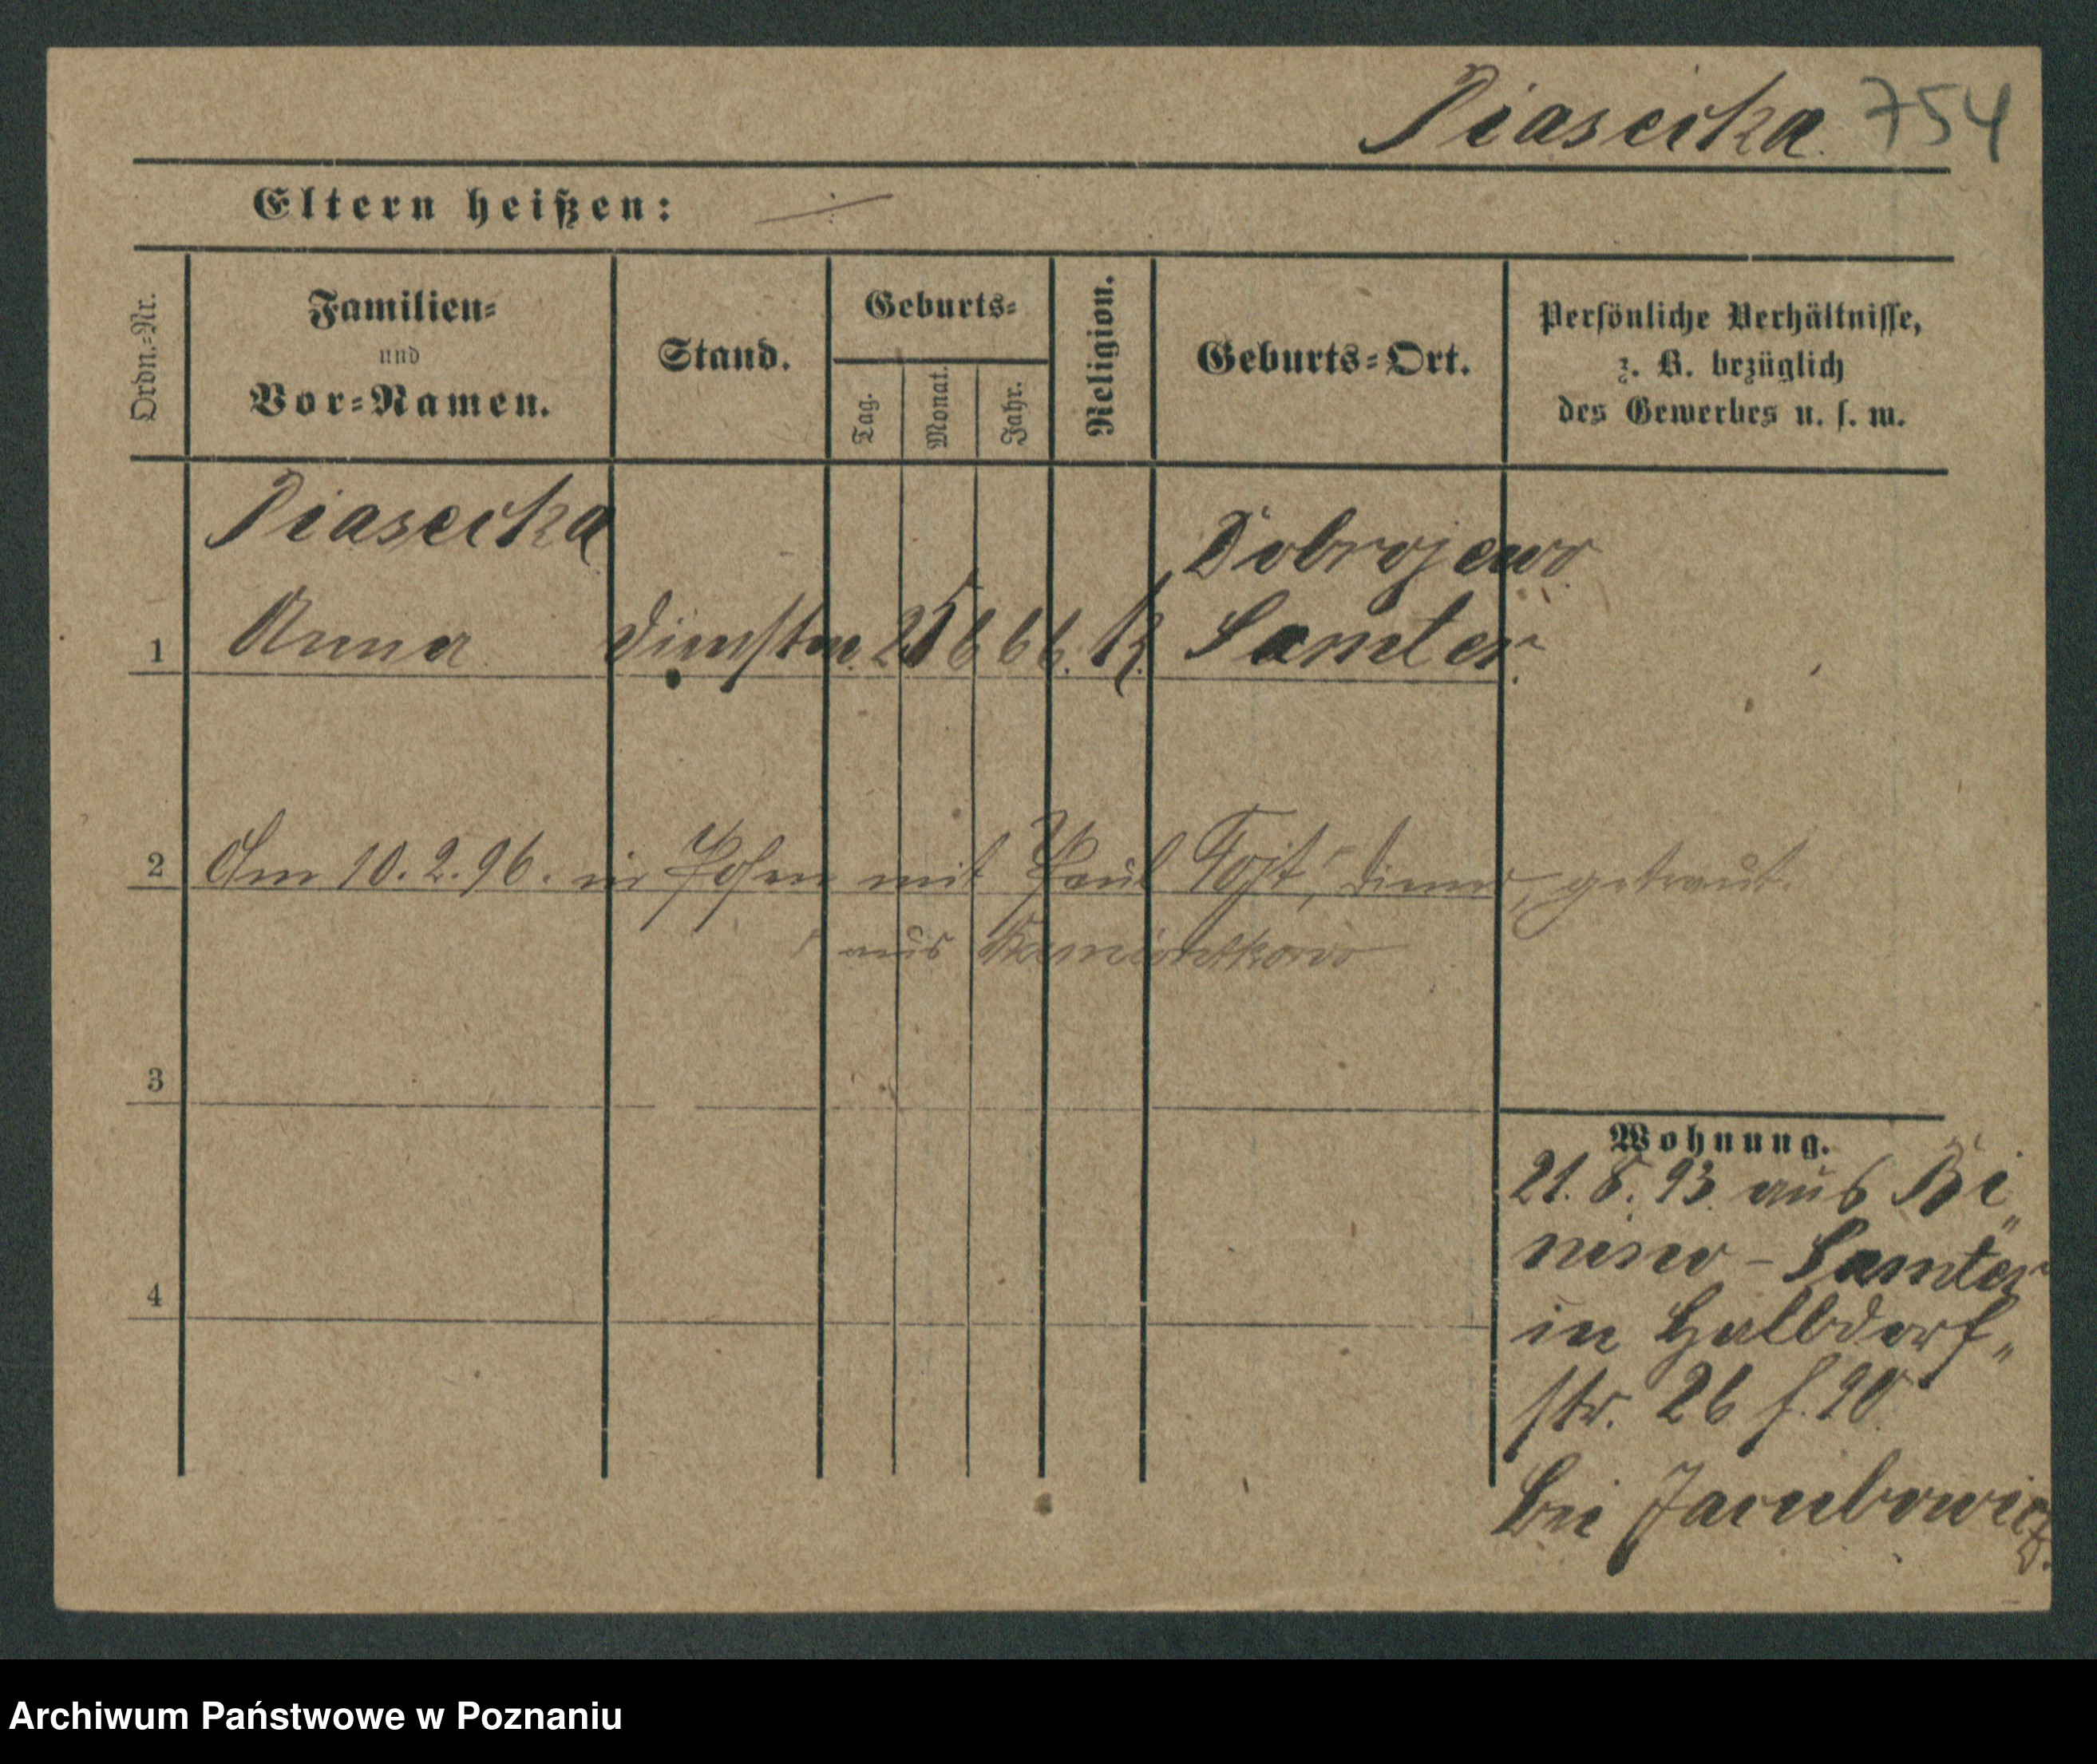 Piasecka. 754
Eltern heißen: ⁒
Ordn.-Nr.
Familien-
und
Vor-Namen.
Stand.
Geburts-
Tag.
Monat.
Jahr.
Religion.
Geburts-Ort.
Persönliche Verhältnisse,
z. B. bezüglich
des Gewerbes u. s. w.
Piasecka Dobrojewo
1 Anna Dienstm. 25 6 66. K. Samter.
2 Am 10.2.96. in Posen mit Paul Fojt, Diener, getraut.
aus
3
Wohnung.
21. 8. 93. aus Bi„
nino - Samter
4
in Halbdorf„
str. 26 f. 90
bei Jacubowicz.
Archiwum Państwowe w Poznaniu